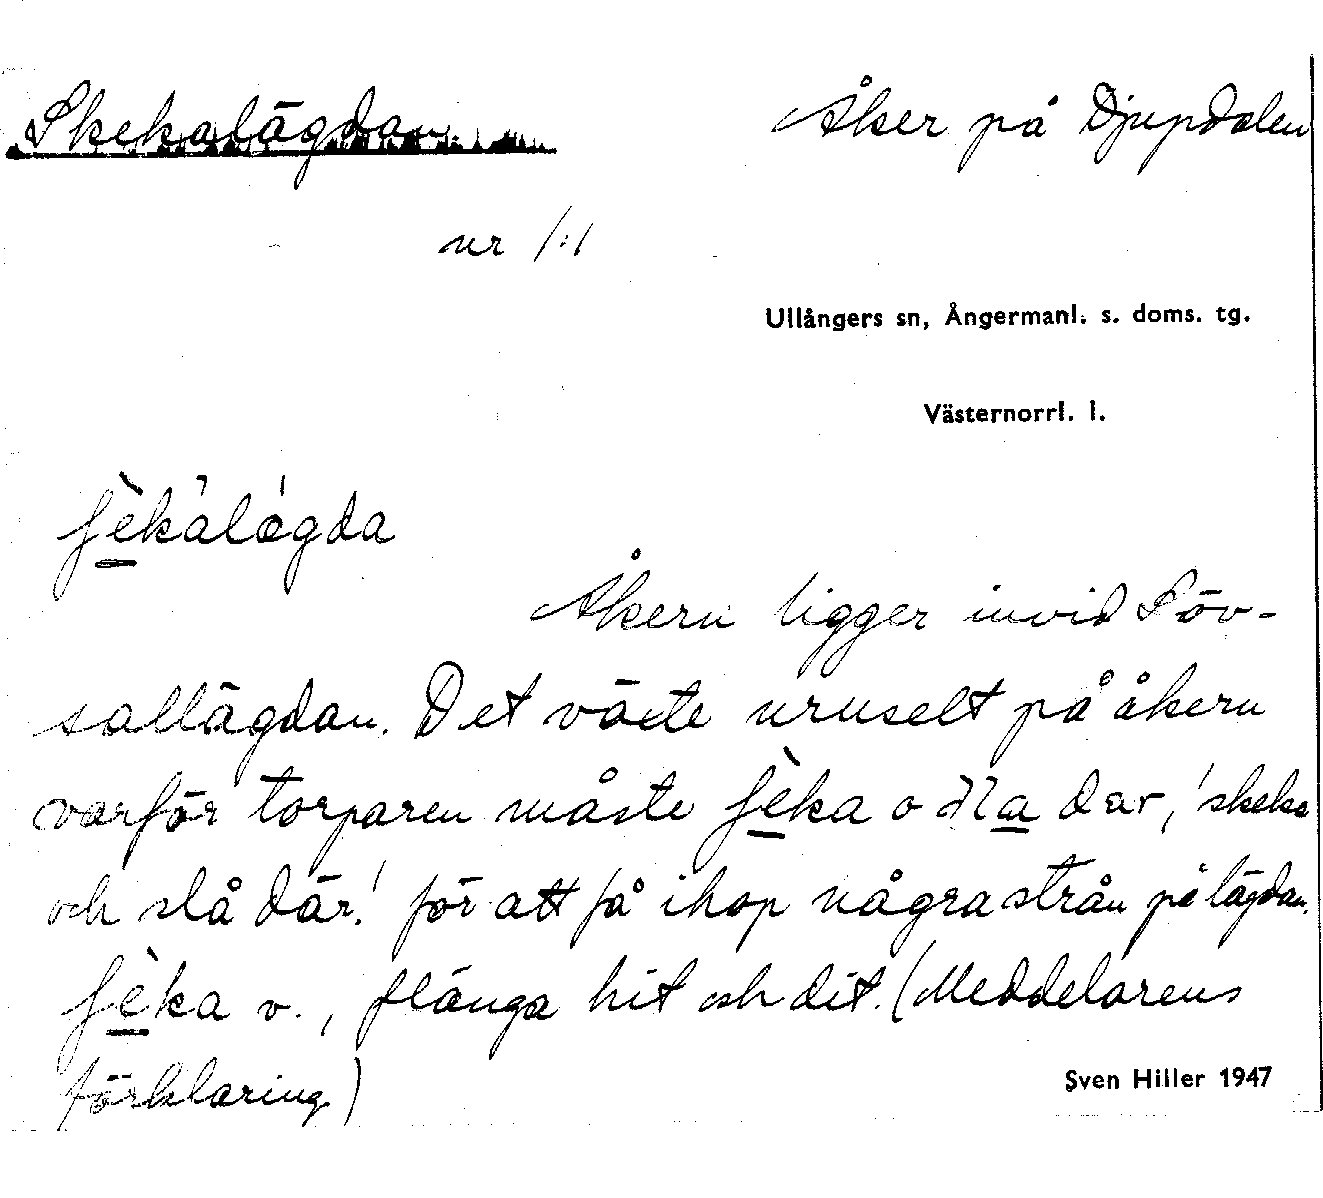 Skekalägdan Åker på Djupdalen
nr 1:1
Ullångers sn, Ångermanl. s. doms. tg.
Västernorrl. l.
ʃὲkàlǽgda
Åkern ligger invid Söv-
sallägdan. Det växte uruselt på åkern
varför torparen måste ʃὲka o där, 'skeka
och slå där! för att få ihop några strån på lägdan.
ʃὲka v., flänga hit och dit. (Meddelarens
förklaring)
Sven Hiller 1947